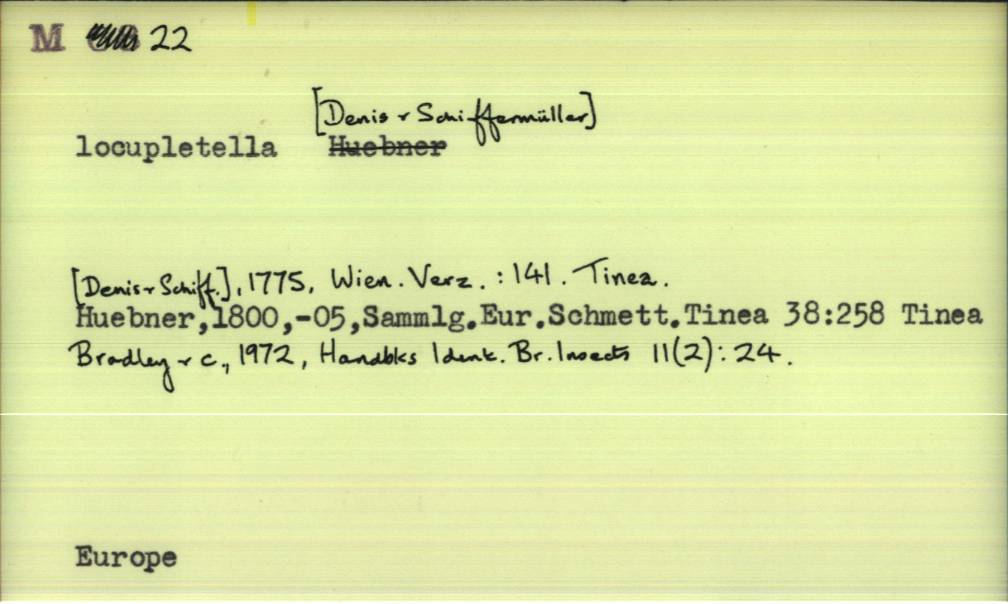 M 22
[Denis & Schiffermüller]
locupletella Huebner
[Denis & Schiff.], 1775, Wien. Verz. : 141. Tinea.
Huebner,1800,-05,Sammlg.Eur.Schmett.Tinea 38:258 Tinea
Bradley & c., 1972, Handbks Ident. Br. Insects 11(2): 24.
Europe